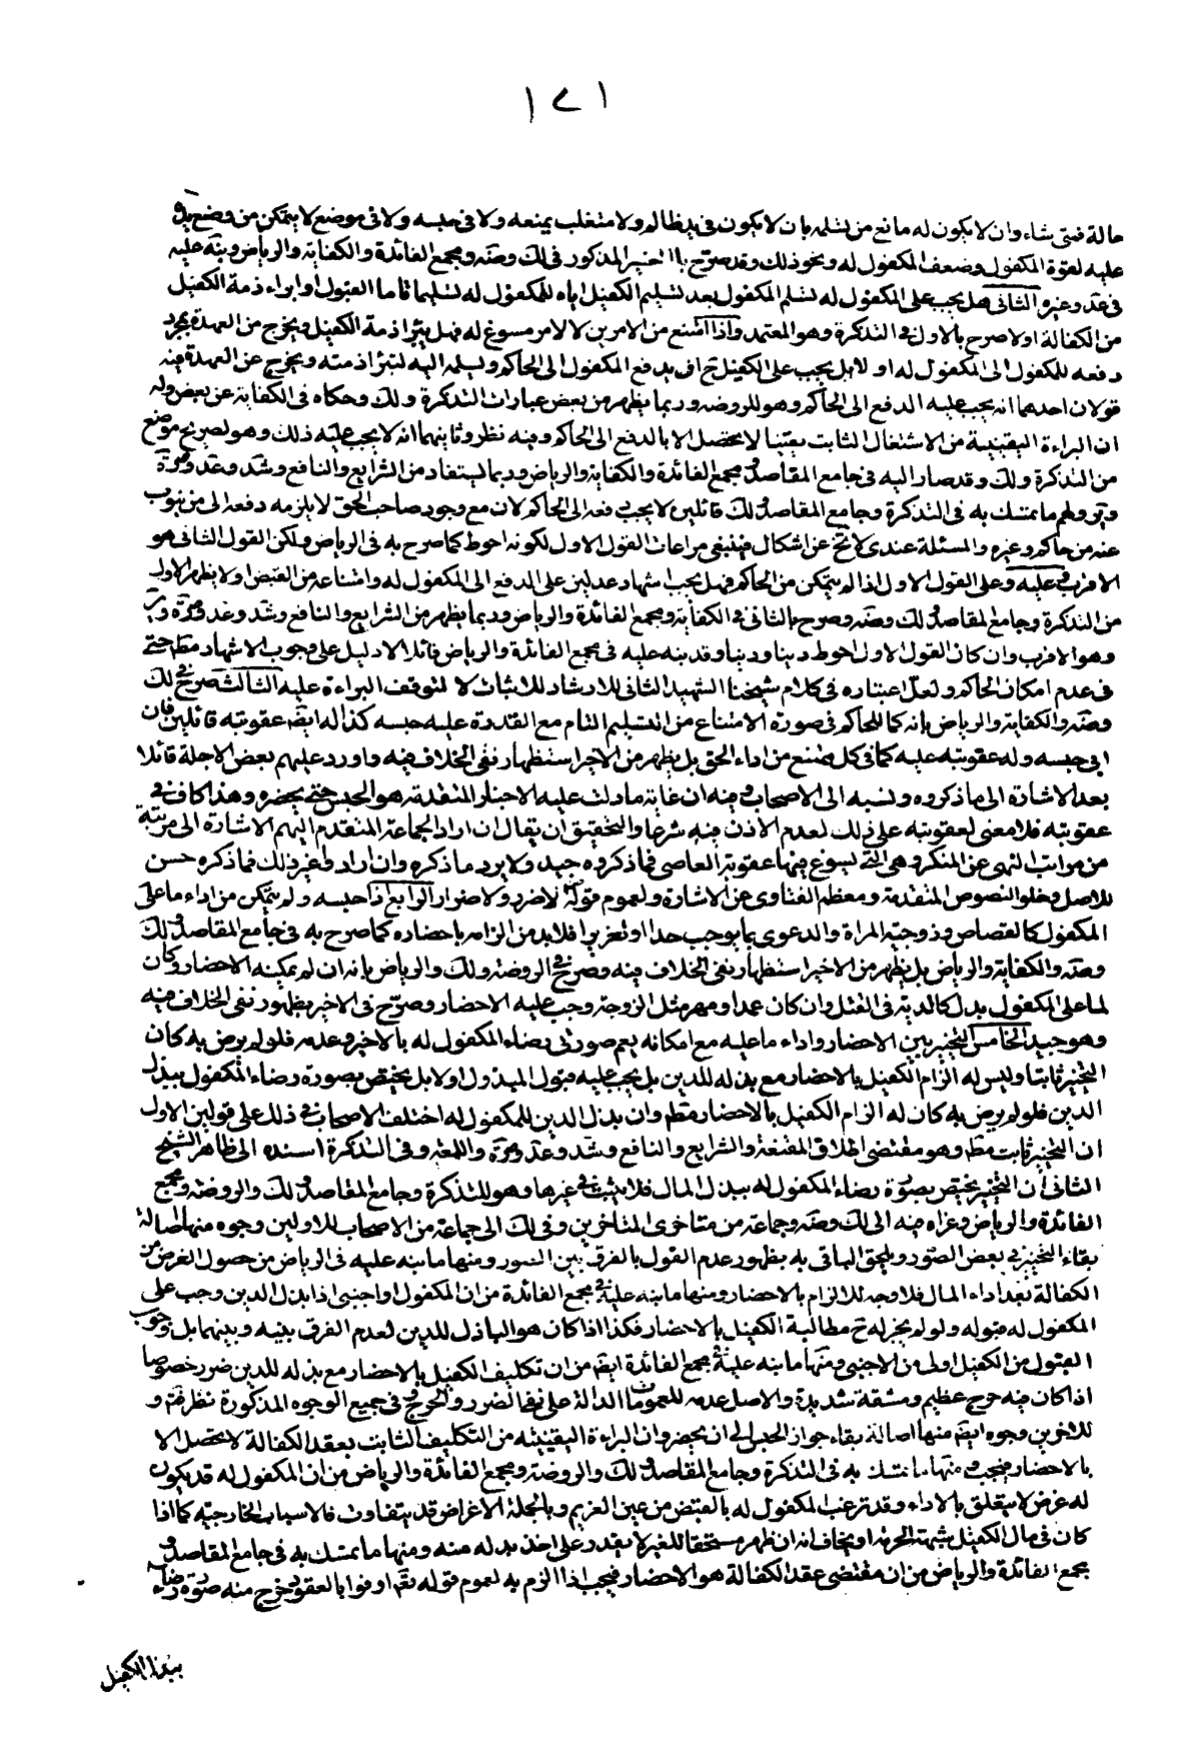 ١٧١
حالة فمتى شاء وان لا يكون له مانع من تسلمه بان لا يكون فى يد ظالم ولا متغلب يمنعه ولا فى حبسه ولا فى موضع لا يتمكن من وضع يده
عليه لقوة المكفول وضعف المكفول له ونحو ذلك وقد صرّح بالاخير المذكور فى لك وضه ومجمع الفائدة والكفاية والرياض ونبّه عليه
فى عد وغيره الثانى هل يجب على المكفول له تسلم المكفول بعد تسليم الكفيل اياه للمكفول له تسليما تاما القبول او ابراء ذمة الكفيل
من الكفالة اولا صرح بالاول فى التذكرة وهو المعتمد واذا امتنع من الامرين لا لامر مسوغ له فهل يبرأ ذمة الكفيل ويخرج من العهدة بمجرد
دفعه للمكفول الى المكفول له او لا بل يجب على الكفيل ح ان يدفع المكفول الى الحاكم ويسلمه اليه لتبرأ ذمته ويخرج عن العهدة فيه
قولان احدهما انه يجب عليه الدفع الى الحاكم وهو للروضه وربما يظهر من بعض عبارات التذكرة ولك وحكاه فى الكفاية عن بعض وله
ان البراءة اليقينية من الاشتغال الثابت يقينا لا يحصل الا بالدفع الى الحاكم وفيه نظر وثانيهما انه لا يجب عليه ذلك وهو لصريح موضع
من التذكرة ولك وقد صار اليه فى جامع المقاصد ومجمع الفائدة والكفاية والرياض وربما يستفاد من الشرايع والنافع وشد وعد وصرة
وير ولهم ما تمسك به فى التذكرة وجامع المقاصد ولك قائلين لا يجب دفعه الى الحاكم لان مع وجود صاحب الحق لا يلزمه دفعه الى من ينوب
عنه من حاكم وغيره والمسئلة عندى لا تخ عن اشكال فينبغى مراعات القول الاول لكونه احوط كما صرح به فى الرياض ولكن القول الثانى هو
الاقرب وعليه وعلى القول الاول اذا لم يتمكن من الحاكم فهل يجب اشهاد عدلين على الدفع الى المكفول له وامتناعه من القبض او لا يظهر الاول
من التذكرة وجامع المقاصد ولك وضه وصرح بالثانى فى الكفاية ومجمع الفائدة والرياض وربما يظهر من الشرايع والنافع وشد وعد وصرة وير
وهو الاقرب وان كان القول الاول احوط دينا ودنيا وقد نبه عليه فى مجمع الفائدة والرياض قائلا لا دليل على وجوب الاشهاد مط حتى
فى عدم امكان الحاكم ولعل اعتباره فى كلام شيخنا الشهيد الثانى للارشاد للاثبات لا لتوقف البراءة عليه الثالث صرح فى لك
وضه والكفاية والرياض بانه كما للحاكم فى صورة الامتناع من التسليم التام مع القدرة عليه حبسه كذا له ايضا عقوبته قائلين فان
ابى حبسه وله عقوبته عليه كما فى كل ممتنع من اداء الحق بل يظهر من الاخير استظهار نفى الخلاف فيه واورد عليهم بعض الاجلة قائلا
بعد الاشارة الى ما ذكروه ونسبه الى الاصحاب وفيه ان غاية ما دلت عليه الاخبار المتقدمة هو الحبس حتى يحضره وهذا كاف فى
عقوبته فلا معنى لعقوبته على ذلك لعدم الاذن فيه شرعا والتحقيق ان يقال ان اراد الجماعة المتقدم اليهم الاشارة الى مرتبة
من مراتب النهى عن المنكر وهى التى يسوغ فيها عقوبة العاصى فما ذكروه جيد ولا يرد ما ذكره وان اراد وا غير ذلك فما ذكره حسن
للاصل وخلو النصوص المتقدمة ومعظم الفتاوى عن الاشارة ولعموم قوله لا ضرر ولا ضرار الرابع اذا حبسه ولم يتمكن من اداء ما على
المكفول كالقصاص وزوجية المراة والدعوى بما يوجب حدا او تعزيرا فلابد من الزامه باحضاره كما صرح به فى جامع المقاصد ولك
وضه والكفاية والرياض بل يظهر من الاخير استظهار نفى الخلاف فيه وصرح فى الروضة ولك والرياض بانه ان لم يمكنه الاحضار وكان
لما على المكفول بدل كالدية فى القتل وان كان عمدا ومهر مثل الزوجة وجب عليه الاحضار وصرّح فى الاخير بظهور نفى الخلاف فيه
وهو جيد الخامس التخيير بين الاحضار واداء ما عليه مع امكانه يعم صورتى رضاء المكفول له بالاخير وعدمه فلو لم يرض به كان
التخيير ثابتا وليس له الزام الكفيل بالاحضار مع بذله للدين بل يجب عليه قبول المبذول اولا بل يختص بصورة رضاء المكفول ببذل
الدين فلو لم يرض به كان له الزام الكفيل بالاحضار مط وان بذل الدين للمكفول له اختلف الاصحاب فى ذلك على قولين الاول
ان التخيير ثابت مط وهو مقتضى اطلاق المقنعة والشرايع والنافع وشد وعد وصرة واللمعة وفى التذكرة اسنده الى ظاهر الشيخ
الثانى ان التخيير يختص بصورة رضاء المكفول له ببذل المال فلا يثبت فى غيرها وهو للتذكرة وجامع المقاصد ولك والروضة ومجمع
الفائدة والرياض وعزاه فيه الى لك وضه وجماعة من متاخرى المتاخرين وفى لك الى جماعة من الاصحاب للاولين وجوه منها اصالة
بقاء التخيير فى بعض الصور ويلحق الباقى به بظهور عدم القول بالفرق بين الصور ومنها ما نبه عليه فى الرياض من حصول الغرض من
الكفالة بعد اداء المال فلا وجه للالزام بالاحضار ومنها ما نبه عليه فى مجمع الفائدة من ان المكفول او اجنبى اذا بذل الدين وجب على
المكفول له قبوله ولو لم يجز له ح مطالبة الكفيل بالاحضار فكذا اذا كان هو الباذل للدين لعدم الفرق بينه وبينهما بل وجوب
القبول من الكفيل اولى من الاجنبى ومنها ما نبه عليه فى مجمع الفائدة ايضا من ان تكليف الكفيل بالاحضار مع بذله للدين ضرر خصوصا
اذا كان فيه حرج عظيم ومشقة شديدة والاصل عدمه للعمومات الدالة على نفى الضرر والحرج وفى جميع الوجوه المذكورة نظر قم و
للاخرين وجوه ايضا منها اصالة بقاء جواز الحبس الى ان يحضر وان البراءة اليقينيه من التكليف الثابت بعقد الكفالة لا يحصل الا
بالاحضار فيجب ومنها ما تمسك به فى التذكرة وجامع المقاصد ولك والروضة ومجمع الفائدة والرياض من ان المكفول له قد يكون
له غرض لا يتعلق بالاداء وقد ترغب المكفول له بالقبض من عين الغريم وبالجملة الاغراض قد يتفاوت فالاسباب الخارجية كما اذا
كان فى مال الكفيل شبهة الحرمة او يخاف انه ان ظهر مستحقا للغير لا يقدر على اخذ بدله منه ومنها ما تمسك به فى جامع المقاصد و
مجمع الفائدة والرياض من ان مقتضى عقد الكفالة هو الاحضار فيجب اذا الزم به لعموم قوله تعم اوفوا بالعقود خرج منه صورة رضاه
ببذل الكفيل